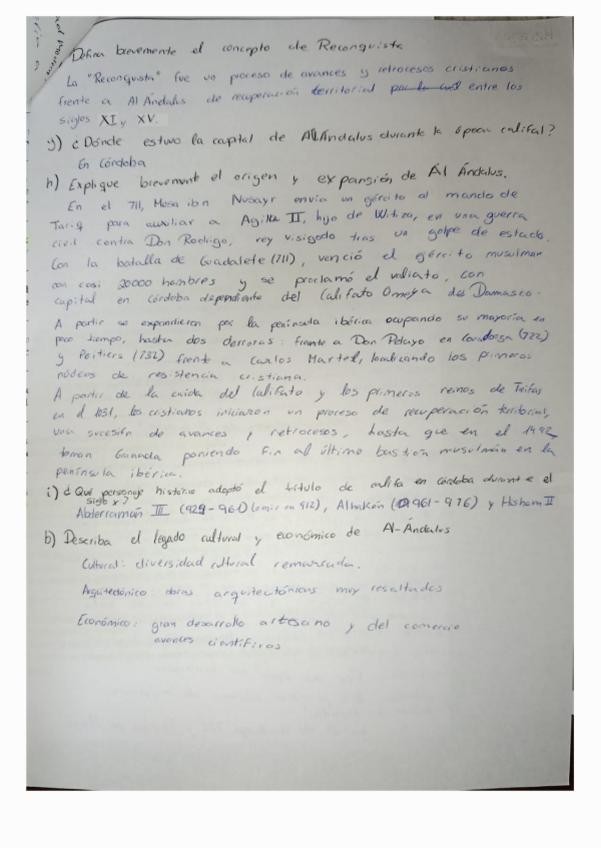 Defina brevemente el concepto de Reconquista
La "Reconquista" fue un proceso de avances y retrocesos cristianos
frente a Al Ándalus de recuperación territorial entre los
siglos XI y XV.
g) ¿Dónde estuvo la capital de Al Ándalus durante la época califal?
En Córdoba
h) Explique brevemente el origen y expansión de Al Ándalus.
En el 711, Musa ibn Nusayr envía un ejército al mando de
Tariq para auxiliar a Agila II, hijo de Witiza, en una guerra
civil contra Don Rodrigo, rey visigodo tras un golpe de estado.
Con la batalla de Guadalete (711), venció el ejército musulman
con casi 20000 hombres y se proclamó el valiato, con
capital en Córdoba dependiente del Califato Omeya de Damasco.
A partir se expandieron por la península ibérica ocupando su mayoría en
poco tiempo, hasta dos derrotas: frente a Don Pelayo en Covadonga (722)
y Poitiers (732) frente a Carlos Martel, localizando los primeros
núcleos de resistencia cristiana.
A partir de la caída del Califato y los primeros reinos de Taifas
en el 1031, los cristianos iniciaron un proceso de recuperación territorial,
una sucesión de avances y retrocesos, hasta que en el 1492
toman Granada poniendo fin al último bastión musulmán en la
península ibérica.
i) ¿Qué personaje histórico adoptó el título de califa en Córdoba durante el
siglo X?
Abderramán III (929-961) (emir en 912), Alhakén (961-976) y Hisham II
b) Describa el legado cultural y económico de Al-Ándalus
Cultural: diversidad cultural remarcada.
Arquitectónico: obras arquitectónicas muy resaltadas
Económico: gran desarrollo artesano y del comercio
avances científicos